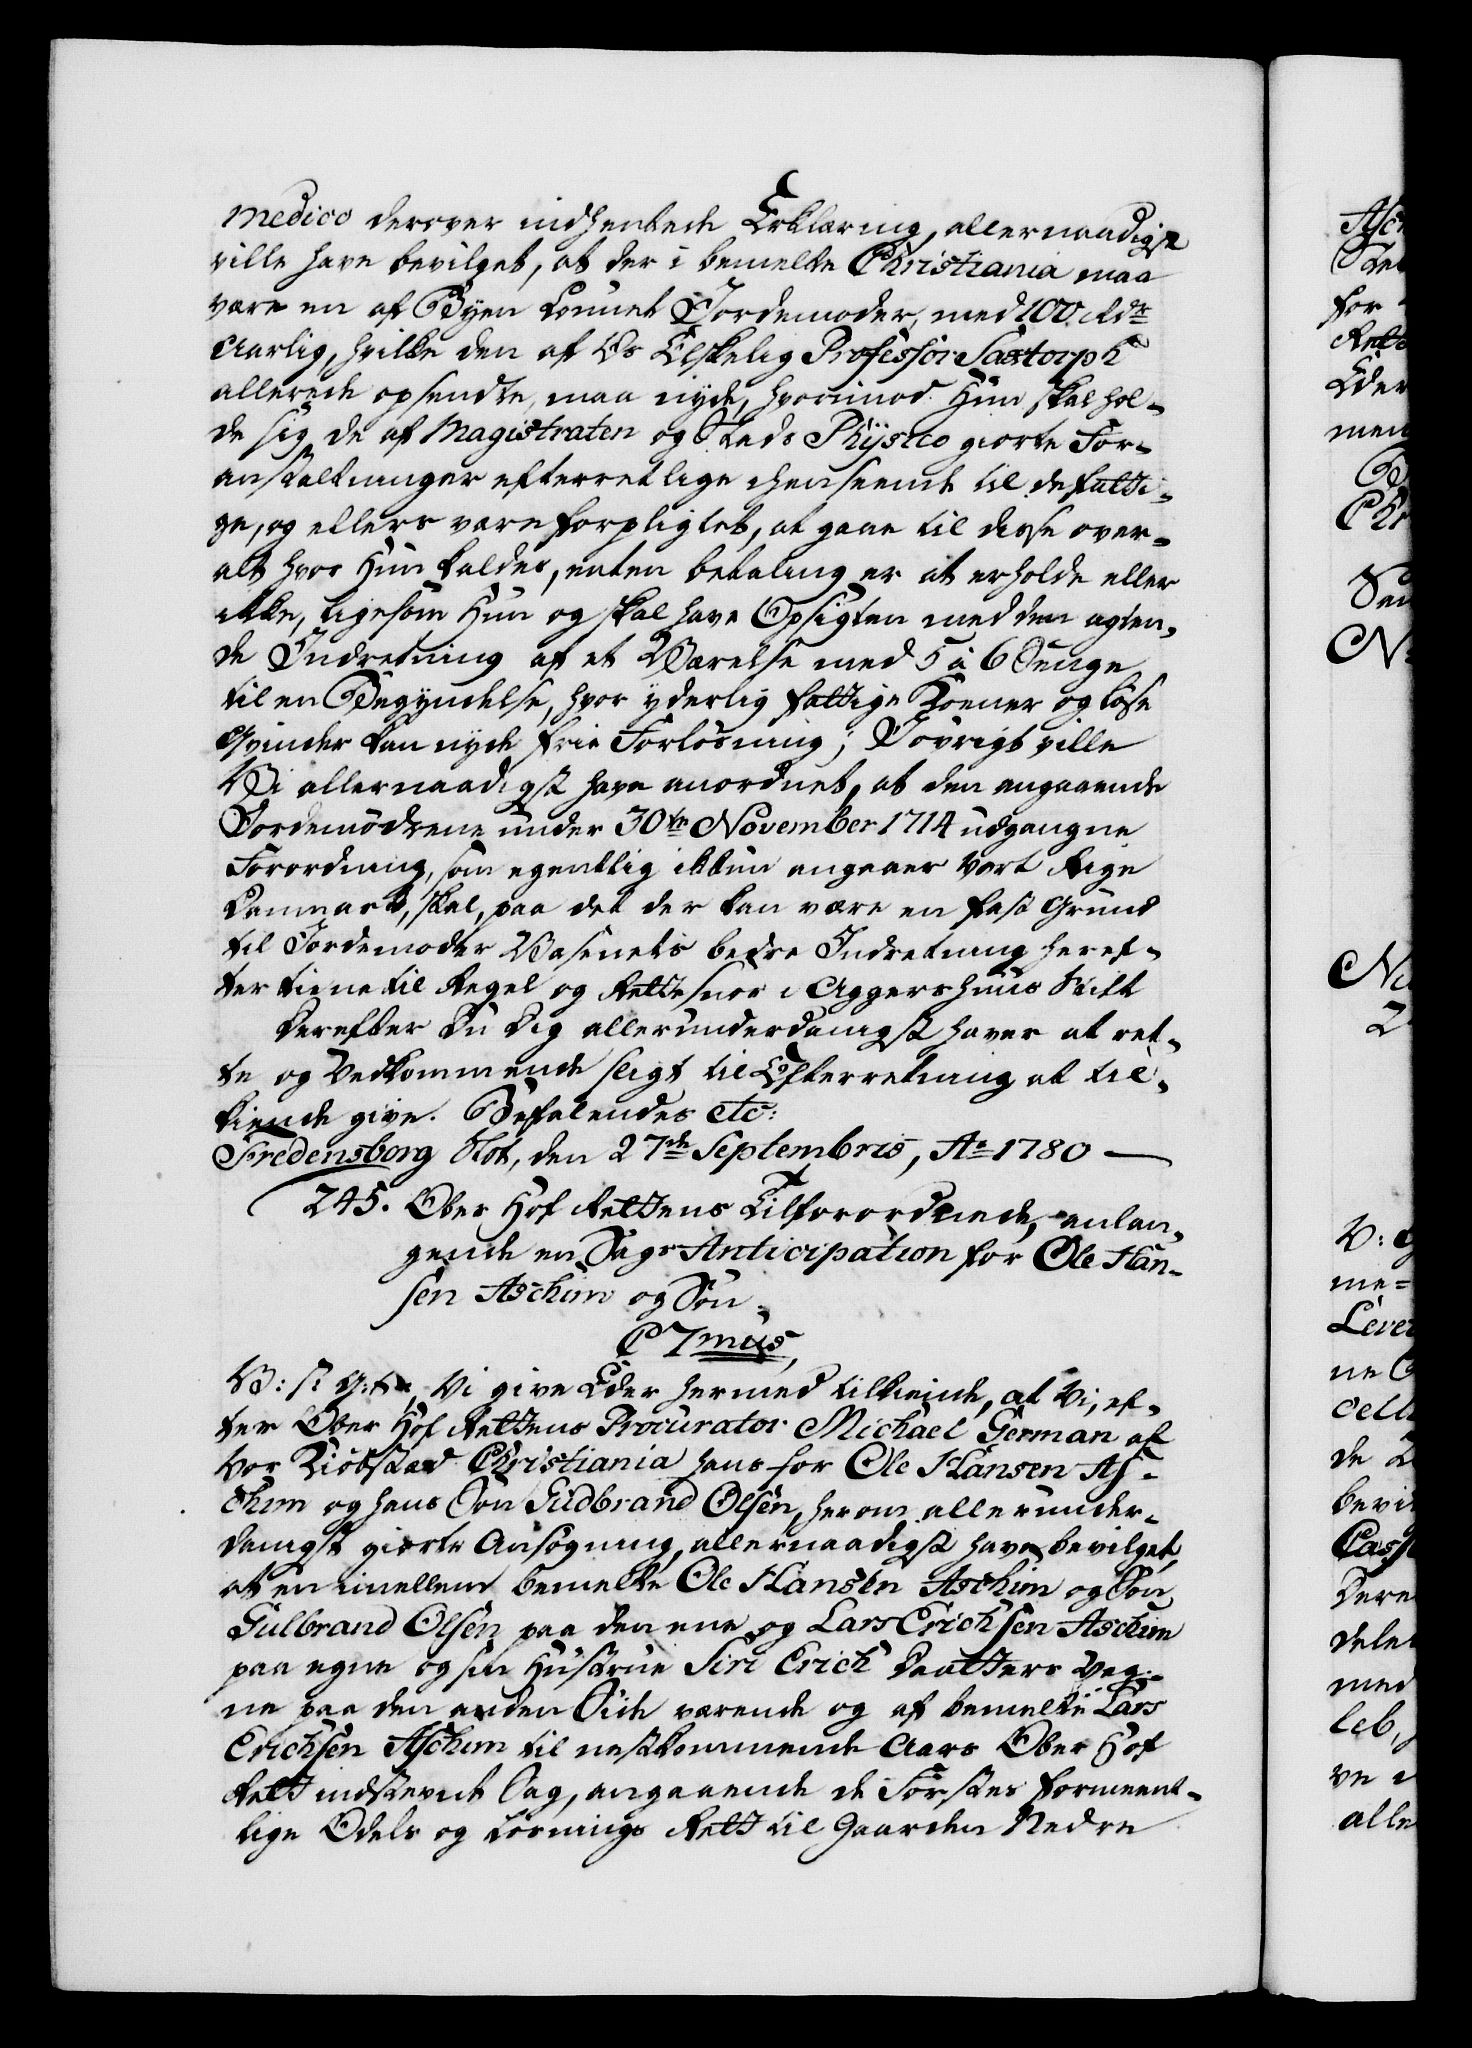 Medico derover indhentede Erklæring, allernaadigst
ville have bevilget, at der i bemelte Christiania maa
være en af Byen lønnet Jordemoder, med 100 Rdr
aarlig, hvilke den af Os Elskelig Professor Saxtorph
allerede opsendte, maa nyde, hvorimod Hun skal hol-
de sig de af Magistraten og Stads Physico giorte For-
anstaltninger efterretlige i henseende til de fatti-
ge, og ellers være forpligtet, at gaae til disse over-
alt hvor Hun kaldes, enten betaling er at erholde eller
ikke, ligesom Hun og skal have Opsigten med den agten-
de Indretning af et Værelse med 5 à 6 Senge
til en Begyndelse, hvor yderlig fattige Koener og løse
Qvinder kan nyde frie Forløsning; I øvrigt ville
Vi allernaadigst have anordnet, at den angaaende
Jordemødrene under 30te November 1714 udgangne
Forordning, som egentlig ikkun angaaer Vort Rige
Danmark, skal, paa det der kan være en fast Grund
til Jordemoder Væsenets bedre Indretning heref-
ter tiene til Regel og Rettesnor i Aggershuus Stift
Derefter Du Dig allerunderdanigst haver at ret-
te og Vedkommende sligt til Efterretning at til-
kiende give. Befalendes etc:
Fredensborg Slot, den 27de Septembris, Ao 1780 —
245. Ober Hof Rettens Tilforordnede, anlan-
gende en Sags Anticipation for Ole Han-
sen Aschim og Søn.
C 7mus,
V: s: G: t:, Vi give Eder hermed tilkiende, at Vi, ef-
ter Ober Hof Rettens Procurator Michael German af
Vor Kiøbstæd Christiania hans for Ole Hansen As-
chim og hans Søn Gudbrand Olsen, herom allerunder-
danigst giorte Ansøgning, allernaadigst have bevilget,
at en imellem bemelte Ole Hansen Aschim og Søn
Gulbrand Olsen paa den ene og Lars Erichsen Aschim
paa egne og sin Hustrue Siri Erich Daatters Veg-
ne paa den anden Side værende og af bemelte Lars
Erichsen Aschim til nestkommende Aars Ober Hof
Rett indstevnt Sag, angaaende de Førstes formeent-
lige Odels og Løsnings Rett til Gaarden Nedre